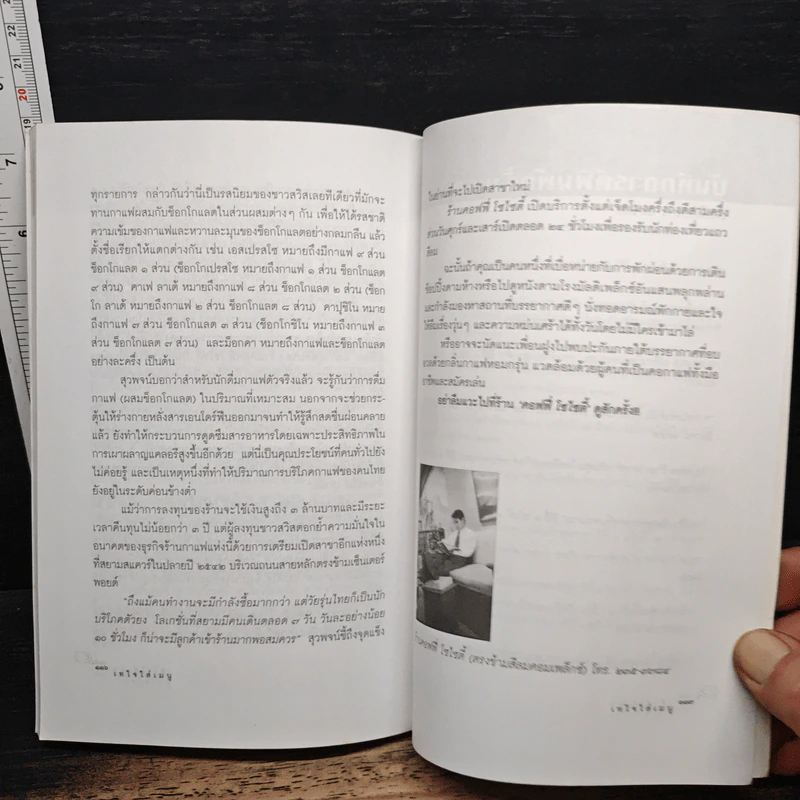 ทุกรายการ กล่าวกันว่านี่เป็นรสนิยมของชาวสวิสเลยทีเดียวที่มักจะ
ทานกาแฟผสมกับช็อกโกแลตในส่วนผสมต่างๆ กัน เพื่อให้ได้รสชาติ
ความเข้มของกาแฟและหวานละมุนของช็อกโกแลตอย่างกลมกลืน แล้ว
ตั้งชื่อเรียกให้แตกต่างกัน เช่น เอสเปรสโซ หมายถึงมีกาแฟ ๙ ส่วน
ช็อกโกแลต ๑ ส่วน (ช็อกโกเปรสโซ หมายถึงกาแฟ ๑ ส่วน ช็อกโกแลต
๙ ส่วน) คาเฟ ลาเต้ หมายถึงกาแฟ ๘ ส่วน ช็อกโกแลต ๒ ส่วน (ช็อก
โก ลาเต้ หมายถึงกาแฟ ๒ ส่วน ช็อกโกแลต ๘ ส่วน) คาปูชิโน หมาย
ถึงกาแฟ ๗ ส่วน ช็อกโกแลต ๓ ส่วน (ช็อกโกชิโน หมายถึงกาแฟ ๓
ส่วน ช็อกโกแลต ๗ ส่วน) และม็อกคา หมายถึงกาแฟและช็อกโกแลต
อย่างละครึ่ง เป็นต้น
สุวพจน์บอกว่าสำหรับนักดื่มกาแฟตัวจริงแล้ว จะรู้กันว่าการดื่ม
กาแฟ (ผสมช็อกโกแลต) ในปริมาณที่เหมาะสม นอกจากจะช่วยกระ-
ตุ้นให้ร่างกายหลั่งสารเอนโดร์ฟินออกมาจนทำให้รู้สึกสดชื่นผ่อนคลาย
แล้ว ยังทำให้กระบวนการดูดซึมสารอาหารโดยเฉพาะประสิทธิภาพใน
การเผาผลาญแคลอรีสูงขึ้นอีกด้วย แต่นี่เป็นคุณประโยชน์ที่คนทั่วไปยัง
ไม่ค่อยรู้ และเป็นเหตุหนึ่งที่ทำให้ปริมาณการบริโภคกาแฟของคนไทย
ยังอยู่ในระดับค่อนข้างต่ำ
แม้ว่าการลงทุนของร้านจะใช้เงินสูงถึง ๓ ล้านบาทและมีระยะ
เวลาคืนทุนไม่น้อยกว่า ๓ ปี แต่ผู้ลงทุนชาวสวิสตอกย้ำความมั่นใจใน
อนาคตของธุรกิจร้านกาแฟแห่งนี้ด้วยการเตรียมเปิดสาขาอีกแห่งหนึ่ง
ที่สยามสแควร์ในปลายปี ๒๕๔๒ บริเวณถนนสายหลักตรงข้ามเซ็นเตอร์
พอยต์
"ถึงแม้คนทำงานจะมีกำลังซื้อมากกว่า แต่วัยรุ่นไทยก็เป็นนัก
บริโภคตัวยง โลเกชั่นที่สยามมีคนเดินตลอด ๗ วัน วันละอย่างน้อย
๑๐ ชั่วโมง ก็น่าจะมีลูกค้าเข้าร้านมากพอสมควร" สุวพจน์ชี้ถึงจุดแข็ง
๑๑๖ เทใจใส่เมนู
ในย่านที่จะไปเปิดสาขาใหม่
ร้านคอฟฟี่ โซไซตี้ เปิดบริการตั้งแต่เจ็ดโมงครึ่งถึงตีสามครึ่ง
ส่วนวันศุกร์และเสาร์เปิดตลอด ๒๔ ชั่วโมงเพื่อรองรับนักท่องเที่ยวแถว
สีลม
ฉะนั้นถ้าคุณเป็นคนหนึ่งที่เบื่อหน่ายกับการพักผ่อนด้วยการเดิน
ช็อปปิ้งตามห้างหรือไปดูหนังตามโรงมัลติเพล็กซ์อันแสนพลุกพล่าน
และกำลังมองหาสถานที่บรรยากาศดีๆ นั่งทอดอารมณ์พักกายและใจ
ให้ลืมเรื่องวุ่นๆ และความหม่นเศร้าได้ทั้งวันโดยไม่มีใครเข้ามาไล่
หรืออาจจะนัดแนะเพื่อนฝูงไปพบปะกันภายใต้บรรยากาศที่อบ
อวลด้วยกลิ่นกาแฟหอมกรุ่น แวดล้อมด้วยผู้คนที่เป็นคอกาแฟทั้งมือ
อาชีพและสมัครเล่น
อย่าลืมแวะไปที่ร้าน 'คอฟฟี่ โซไซตี้' ดูสักครั้งสิ
ร้านคอฟฟี่ โซไซตี้ (ตรงข้ามสีลมคอมเพล็กซ์) โทร. ๒๓๕-๙๗๘๔
เทใจใส่เมนู ๑๑๗